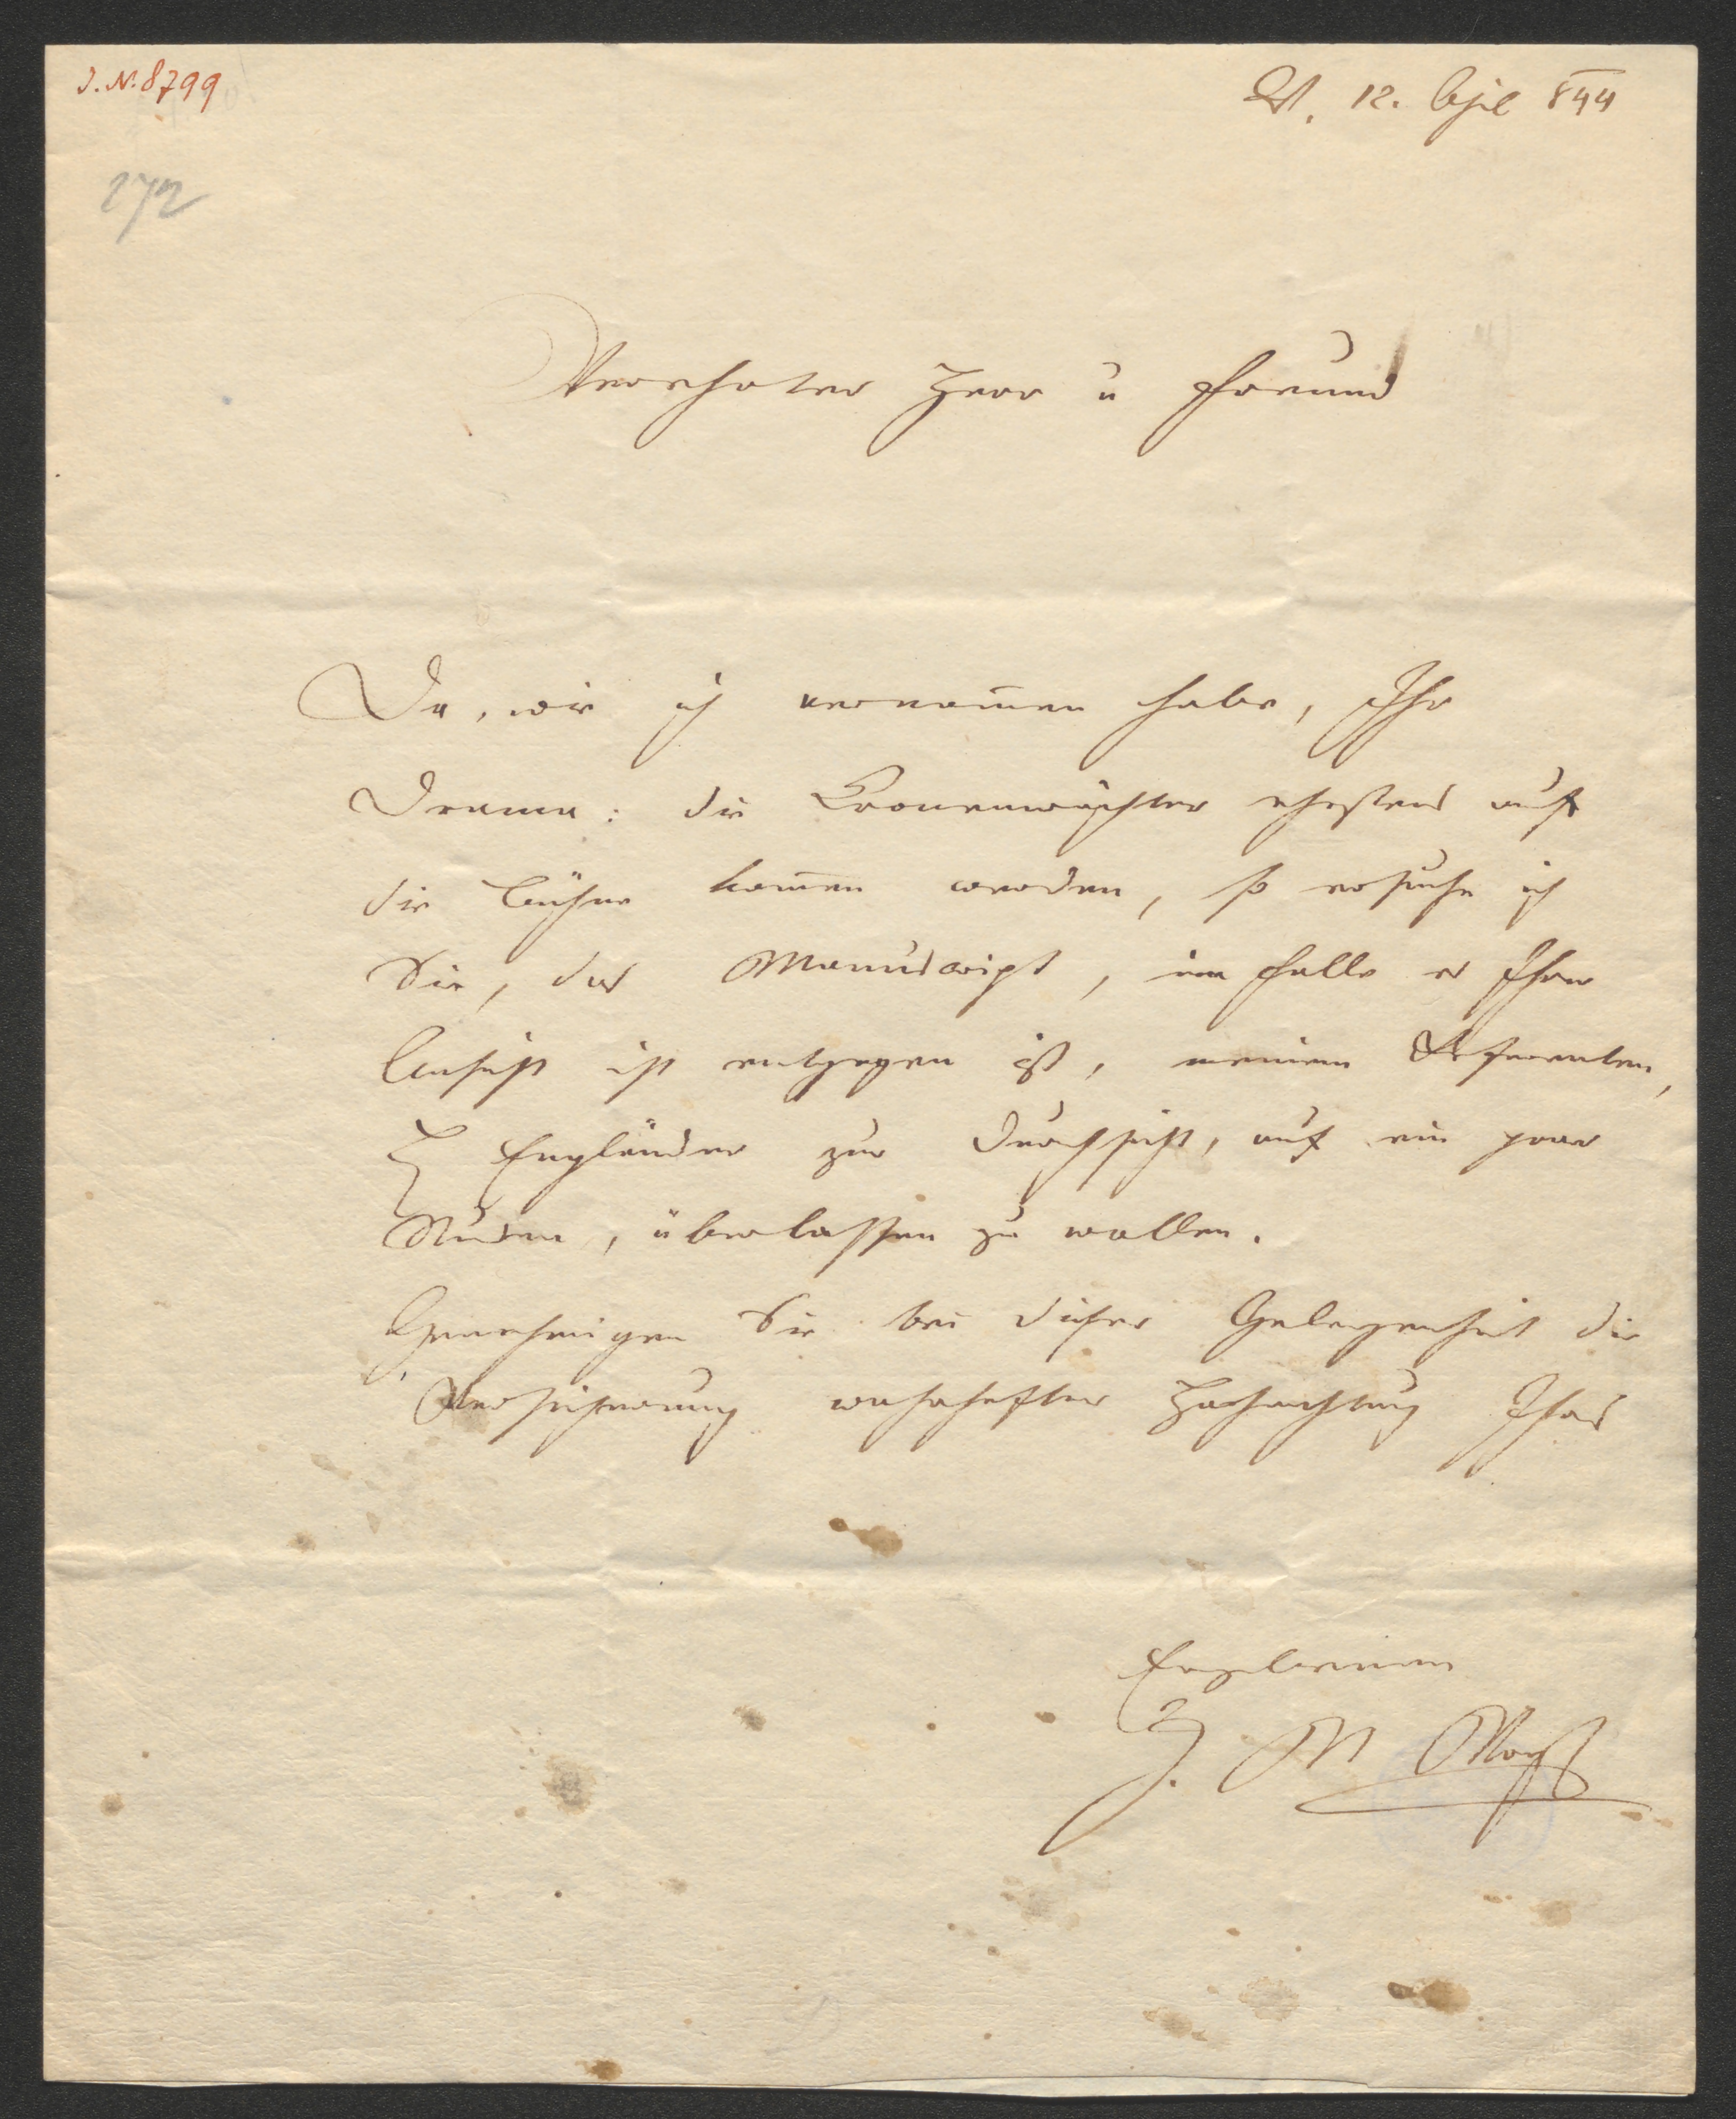 I. N. 8799
12. April 844
272
Verehrter Herr u Freund
Da, wie ich vernom̄en habe, Ihr
Drama: die Kronenwächter ehestens auf
die Bühne kom̄en werden, so ersuche ich
Sie, das Manuscript, im Falle es Ihrer
Ansicht nicht entgegen ist, meinem Referenten,
H Engländer zur Durchsicht, auf ein paar
Stunden, überlassen zu wollen.
Genehmigen Sie bei dieser Gelegenheit die
Versicherung wahrhafter Hochachtung Ihres
Ergebenen
J.